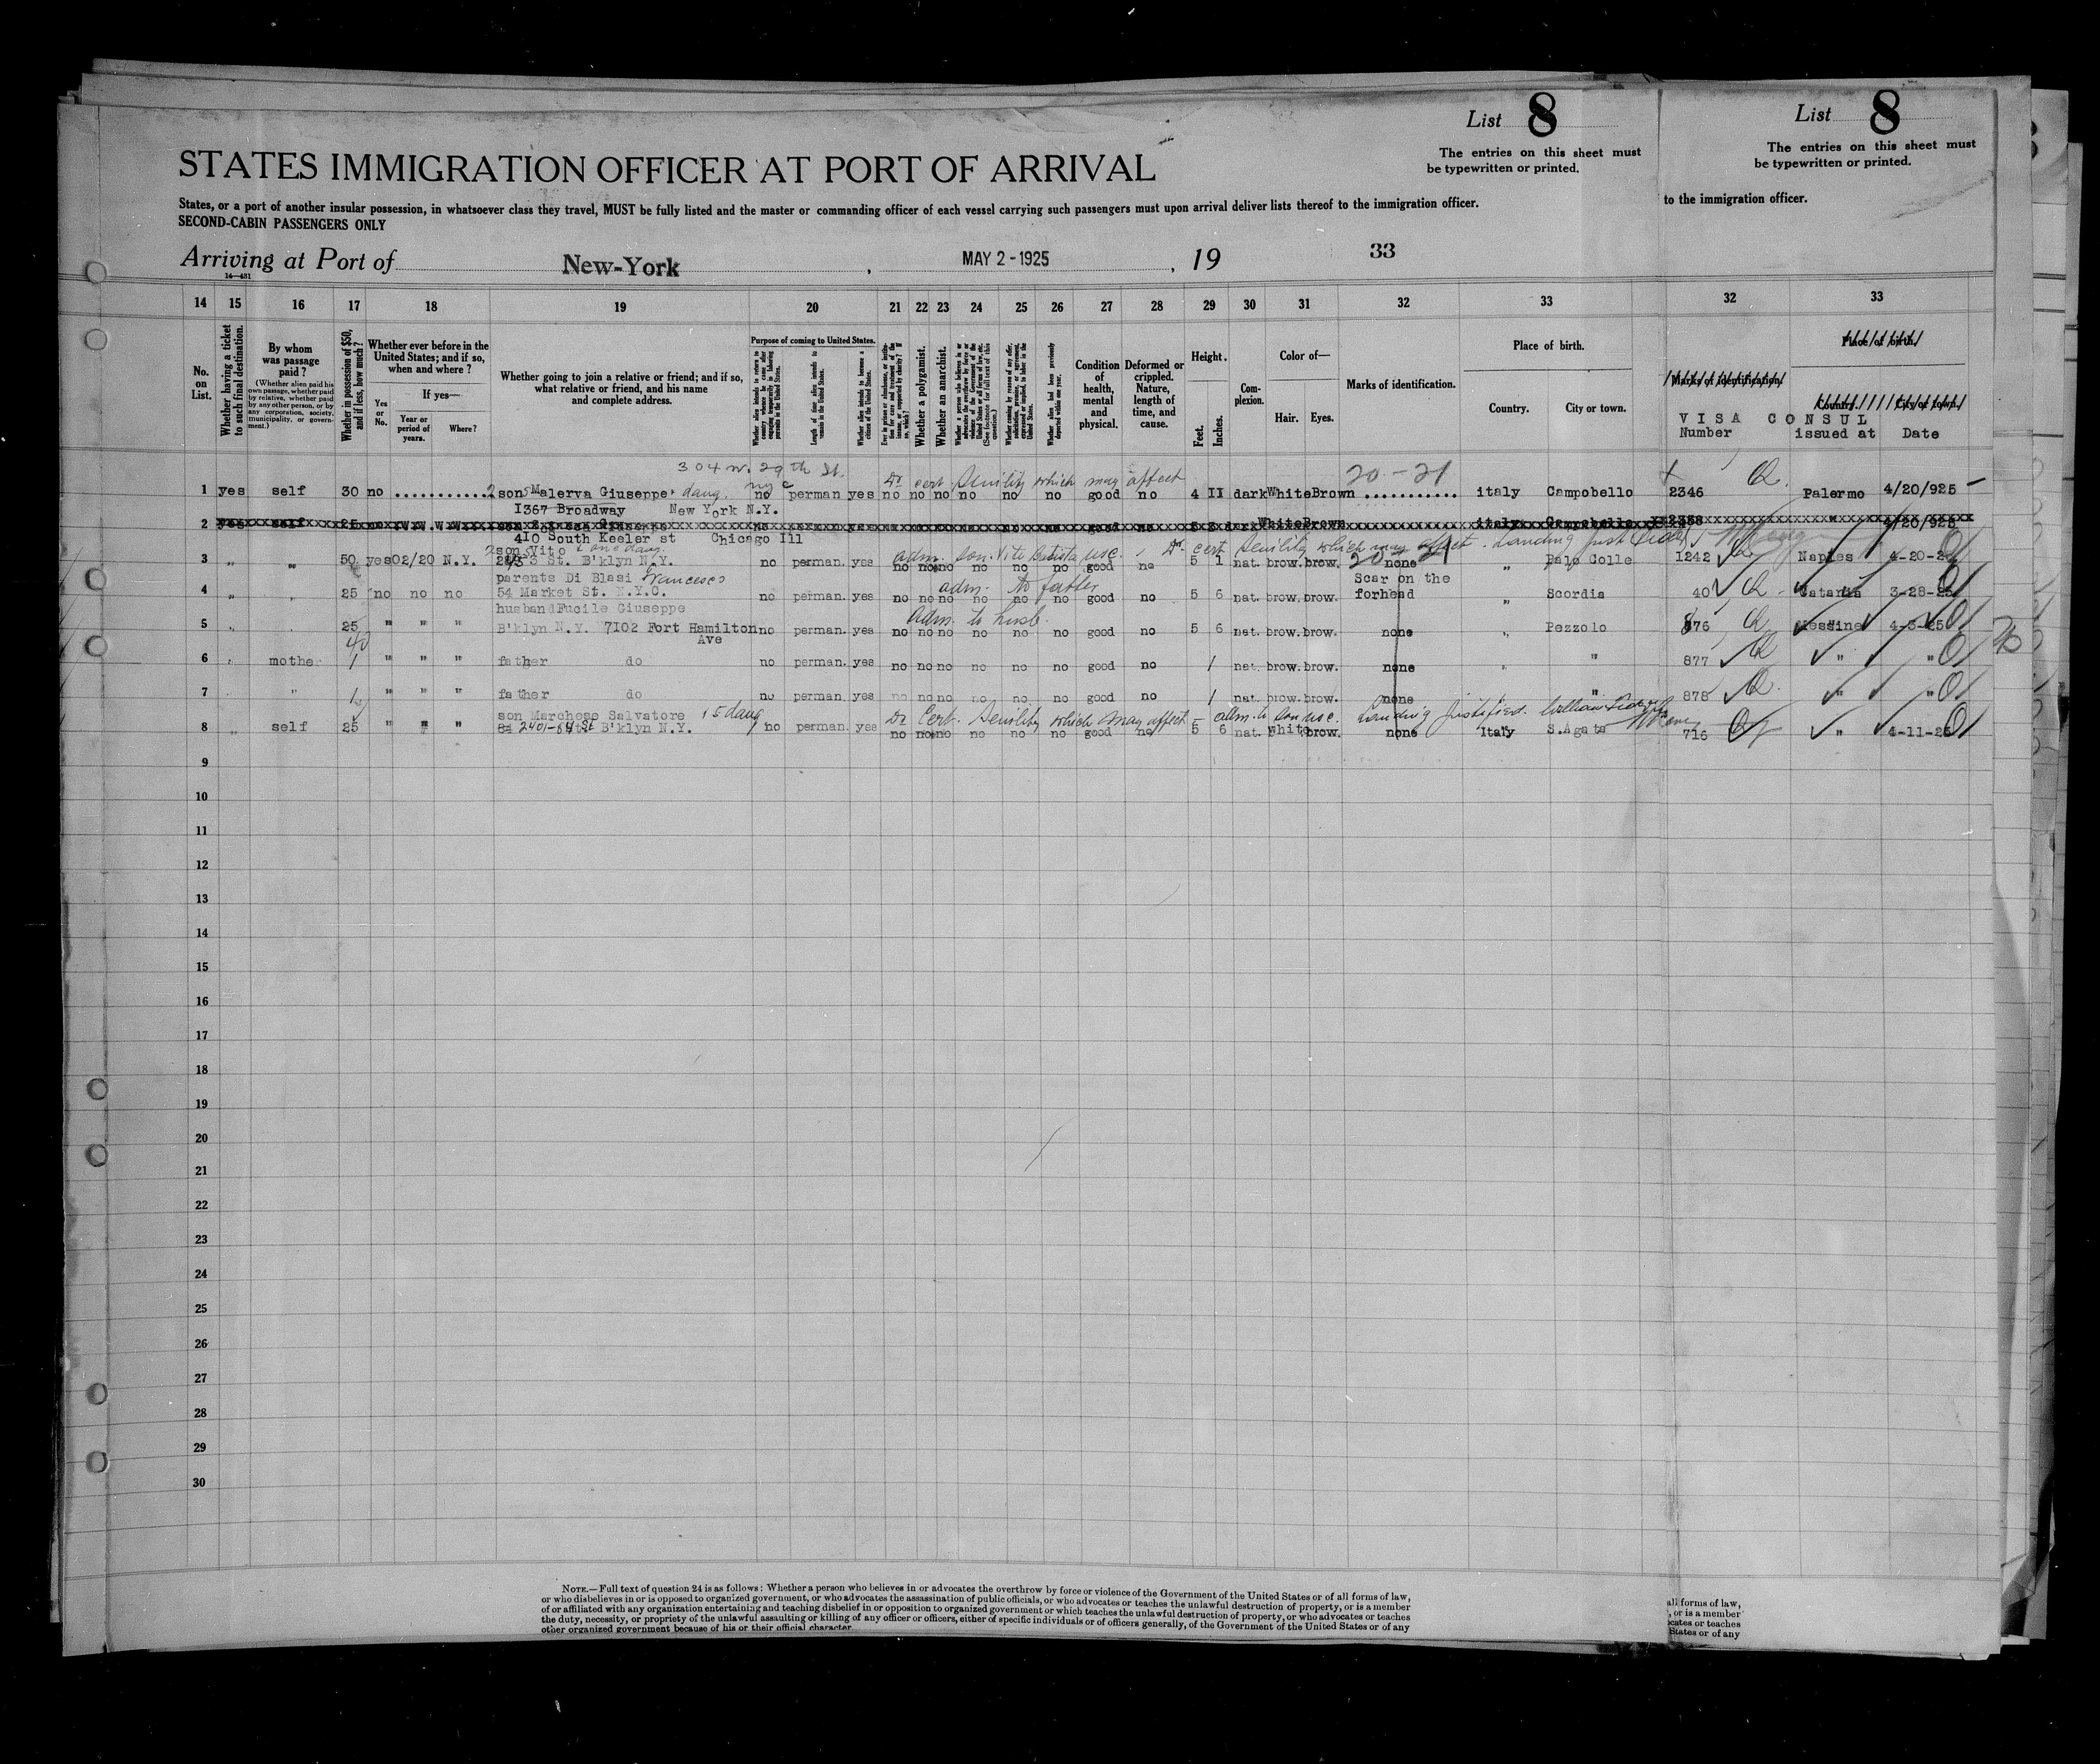 List 8
List 8
The entries on this sheet must
be typewritten or printed.
The entries on this sheet must
be typewritten or printed.
STATES IMMIGRATION OFFICER AT PORT OF ARRIVAL
States, or a port of another insular possession, in whatsoever class they travel, MUST be fully listed and the master or commanding officer of each vessel carrying such passengers must upon arrival deliver lists thereof to the immigration officer.
to the immigration officer.
SECOND-CABIN PASSENGERS ONLY
Arriving at Port of New-York, MAY 2 - 1925, 19
33
14—481
14 15 16 17 18 19 20 21 22 23 24 25 26 27 28 29 30 31 32 33 32 33
No. on List.
Whether having a ticket to such final destination.
By whom was passage paid?
(Whether alien paid his own passage, whether paid by relative, whether paid by any other person, or by any corporation, society, municipality, or government.)
Whether in possession of $50, and if less, how much?
Whether ever before in the United States; and if so, when and where?
Yes or No.
If yes—
Year or period of years.
Where?
Whether going to join a relative or friend; and if so, what relative or friend, and his name and complete address.
Purpose of coming to United States.
Length of time alien intends to remain in the United States.
Whether alien intends to become a citizen of the United States.
Whether a polygamist.
Whether an anarchist.
Whether alien had been previously deported within one year.
Condition of health, mental and physical.
Deformed or crippled. Nature, length of time, and cause.
Height.
Feet. Inches.
Complexion.
Color of—
Hair. Eyes.
Marks of identification.
Place of birth.
Country. City or town.
Marks of identification.
Place of birth.
Country. City or town.
VISA CONSUL
Number issued at Date
304 W. 29th St.
nyc
Dr cert Senility which may affect
20-21
1 yes self 30 no ............ 2 sons Malerva Giuseppe + daug. no perman yes no no no no no no good no 4 II dark White Brown ........... italy Campobello 2346 Palermo 4/20/925
I367 Broadway New York N.Y.
2 yes self 25 no no perman yes no no no no no no good no 5 3 dark White Brown italy Campobello 4/20/925
4I0 South Keeler st Chicago Ill
2 sons Vito & one daug.
adm. son Vito Batista usc. Dr. cert Senility which may affect. Landing just
3 " " 50 yes 02/20 N.Y. 3 St. B'klyn N.Y. no perman. yes no no no no no no good no 5 1 nat. brow. brow. none " Palo Colle 1242 Naples 4-20-2
20 21
parents Di Blasi Francesco
adm. to father
Scar on the
4 " " 25 no no no 54 Market St. N.Y.C. no perman. yes no no no no no no good no 5 6 nat. brow. brow. forhead " Scordia 40 Catania 3-28-25
husband Fucile Giuseppe
adm. to husb.
5 " " 25 " " " B'klyn N.Y. 7102 Fort Hamilton no perman. yes no no no no no no good no 5 6 nat. brow. brow. none " Pezzolo 876 Messine 4-3-25
Ave
40
6 " mother 1 " " " father do no perman. yes no no no no no no good no / nat. brow. brow. none " " 877 " "
7 " 1 " " " father do no perman. yes no no no no no no good no / nat. brow. brow. none " 878 " "
son Marchese Salvatore , 5 daug
Dr Cert. Senility which may affect - adm. to son usc. Landing justified.
8 " self 25 " " " 2401-64 St B'klyn N.Y. no perman. yes no no no no no no good no 5 6 nat. White brow. none Italy S.Agata 716 " 4-11-25
9
10
11
12
13
14
15
16
17
18
19
20
21
22
23
24
25
26
27
28
29
30
NOTE.—Full text of question 24 is as follows: Whether a person who believes in or advocates the overthrow by force or violence of the Government of the United States or of all forms of law,
or who disbelieves in or is opposed to organized government, or who advocates the assassination of public officials, or who advocates or teaches the unlawful destruction of property, or is a member
of or affiliated with any organization entertaining and teaching disbelief in or opposition to organized government or which teaches the unlawful destruction of property, or who advocates or teaches
the duty, necessity, or propriety of the unlawful assaulting or killing of any officer or officers, either of specific individuals or of officers generally, of the Government of the United States or of any
other organized government because of his or their official character.
all forms of law,
, or is a member
cates or teaches
States or of any